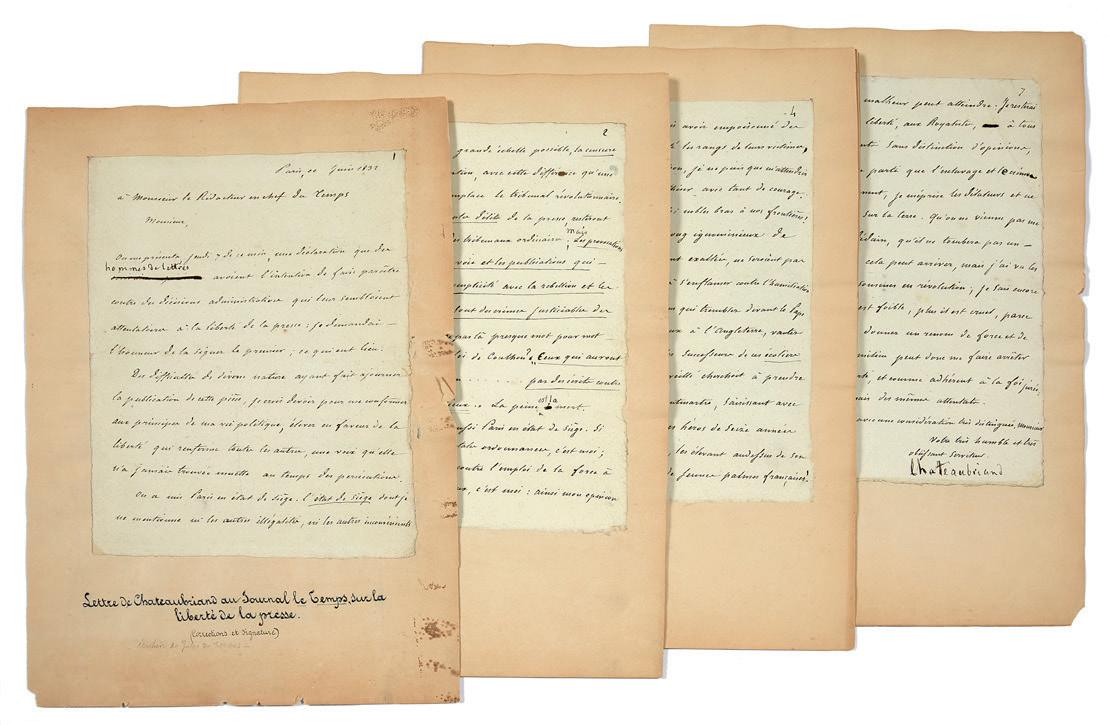 1
Paris, ce Juin 1832
à Monsieur le Rédacteur en chef du Temps
Monsieur,
On me présenta, jeudi 7 de ce mois, une déclaration que des
hommes de lettres
avoient l'intention de faire paroître
contre des décisions administratives qui leur sembloient
attentatoires à la liberté de la presse : je demandai
l'honneur de la signer le premier ; ce qui eut lieu.
Des difficultés de diverse nature ayant fait ajourner
la publication de cette pièce, je crois devoir pour me conformer
aux principes de ma vie politique, élever en faveur de la
liberté qui renferme toutes les autres, une voix qu'elle
n'a jamais trouvée muette au temps des persécutions.
On a mis Paris en état de siège. l'état de siège dont je
ne mentionne ni les autres illégalités, ni les autres inconvénients
Lettre de Chateaubriand au Journal le Temps, sur la
liberté de la presse.
(Corrections et signature)
2
grande échelle possible, la censure
avec cette différence qu'une
remplace le tribunal révolutionnaire.
délits de la presse resteront
tribunaux ordinaires, Mais les provocations
et les publications qui
complicité avec la rébellion et les
sont des crimes justiciables des
pas là presque mot pour mot
loi de Couthon, Ceux qui auront
par des écrits contre
La peine est la mort.
Paris en état de siège. Si
ordonnances, c'est moi ;
contre l'emploi de la force à
c'est moi : ainsi mon opinion
4
avoir empoisonné des
les rangs de leurs victimes,
je ne puis que m'attendrir
avec tant de courage.
bras à nos frontières,
joug ignominieux de
exaltée, ne seroient pas
à s'enflammer contre l'humiliation
qui trembler devant le Pape
à l'Angleterre, vanter
successeur de
cherchoit à prendre
Montmartre, saisissant avec
héros de Seize années
les élevant au dessus de son
de jeunes palmes françaises !
7
malheur peut atteindre. Je resterai
liberté, aux Royalistes, à tous
Sans distinction d'opinions,
parte que l'esclavage et le crime
je méprise les délateurs et ne
sur la terre. Qu'on ne vienne pas me
qu'il ne tombera pas un
cela peut arriver, mais j'ai vu les
en révolution ; je sais encore
est foible, plus il est cruel, parce
donner un renom de force et de
peut donc me faire arrêter
et comme adhérent à la foi jurée,
des mêmes attentats.
avec une considération très distinguée, monsieur
votre très humble et très
obéissant Serviteur.
Chateaubriand